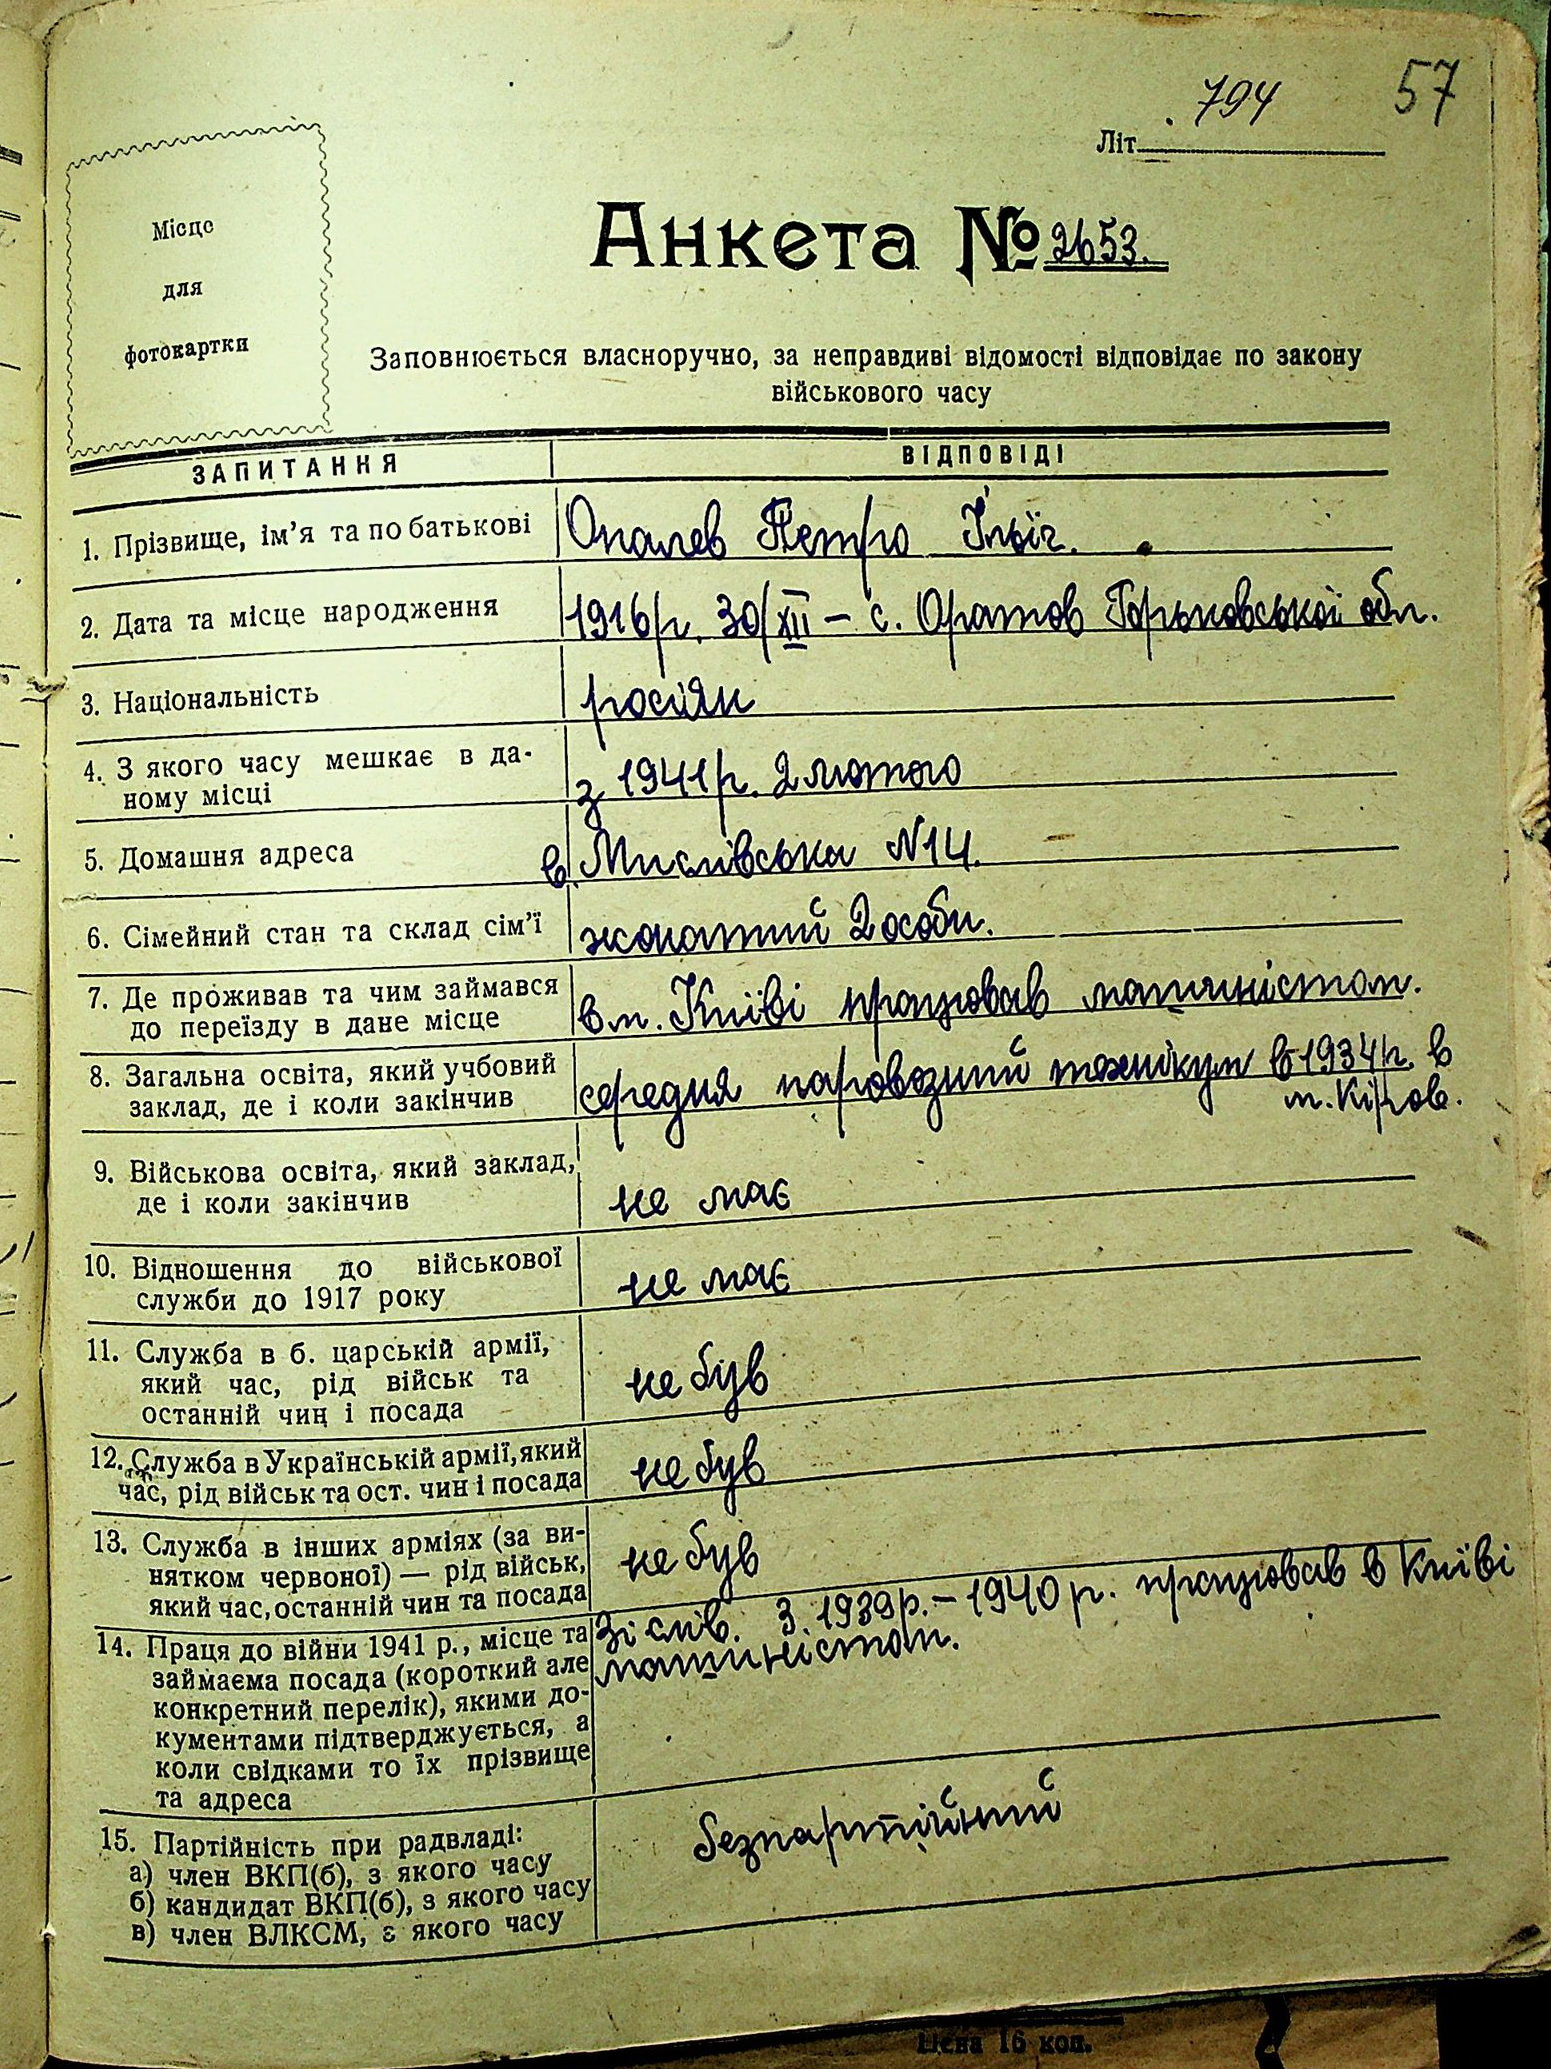 57
794
Літ
Місце
для
фотокартки
Анкета № 2653.
Заповнюється власноручно, за неправдиві відомості відповідає по закону
військового часу
ЗАПИТАННЯ
ВІДПОВІДІ
1. Прізвище, ім'я та по батькові
Опалев Петро Ільїч.
2. Дата та місце народження
1916 р. 30/XII – с. Оратов Горьковської обл.
3. Національність
росіян
4. З якого часу мешкає в да-
ному місці
з 1941 р. 2 лютого
5. Домашня адреса
в. Мислівська N 14.
6. Сімейний стан та склад сім'ї
жонатий 2 особи.
7. Де проживав та чим займався
до переїзду в дане місце
в м. Київі працював машиністом.
8. Загальна освіта, який учбовий
заклад, де і коли закінчив
середня паровозний технікум в 1934 р. в
м. Кіров.
9. Військова освіта, який заклад,
де і коли закінчив
не має
10. Відношення до військової
служби до 1917 року
не має
11. Служба в б. царській армії,
який час, рід військ та
останній чин і посада
не був
12. Служба в Українській армії, який
час, рід військ та ост. чин і посада
не був
13. Служба в інших арміях (за ви-
нятком червоної) — рід військ,
який час, останній чин та посада
не був
14. Праця до війни 1941 р., місце та
займаєма посада (короткий але
конкретний перелік), якими до-
кументами підтверджується, а
коли свідками то їх прізвище
та адреса
Зі слів. З. 1939 р. – 1940 р. працював в Київі
машиністом.
15. Партійність при радвладі:
а) член ВКП(б), з якого часу
б) кандидат ВКП(б), з якого часу
в) член ВЛКСМ, з якого часу
безпартійний
Цена 16 коп.